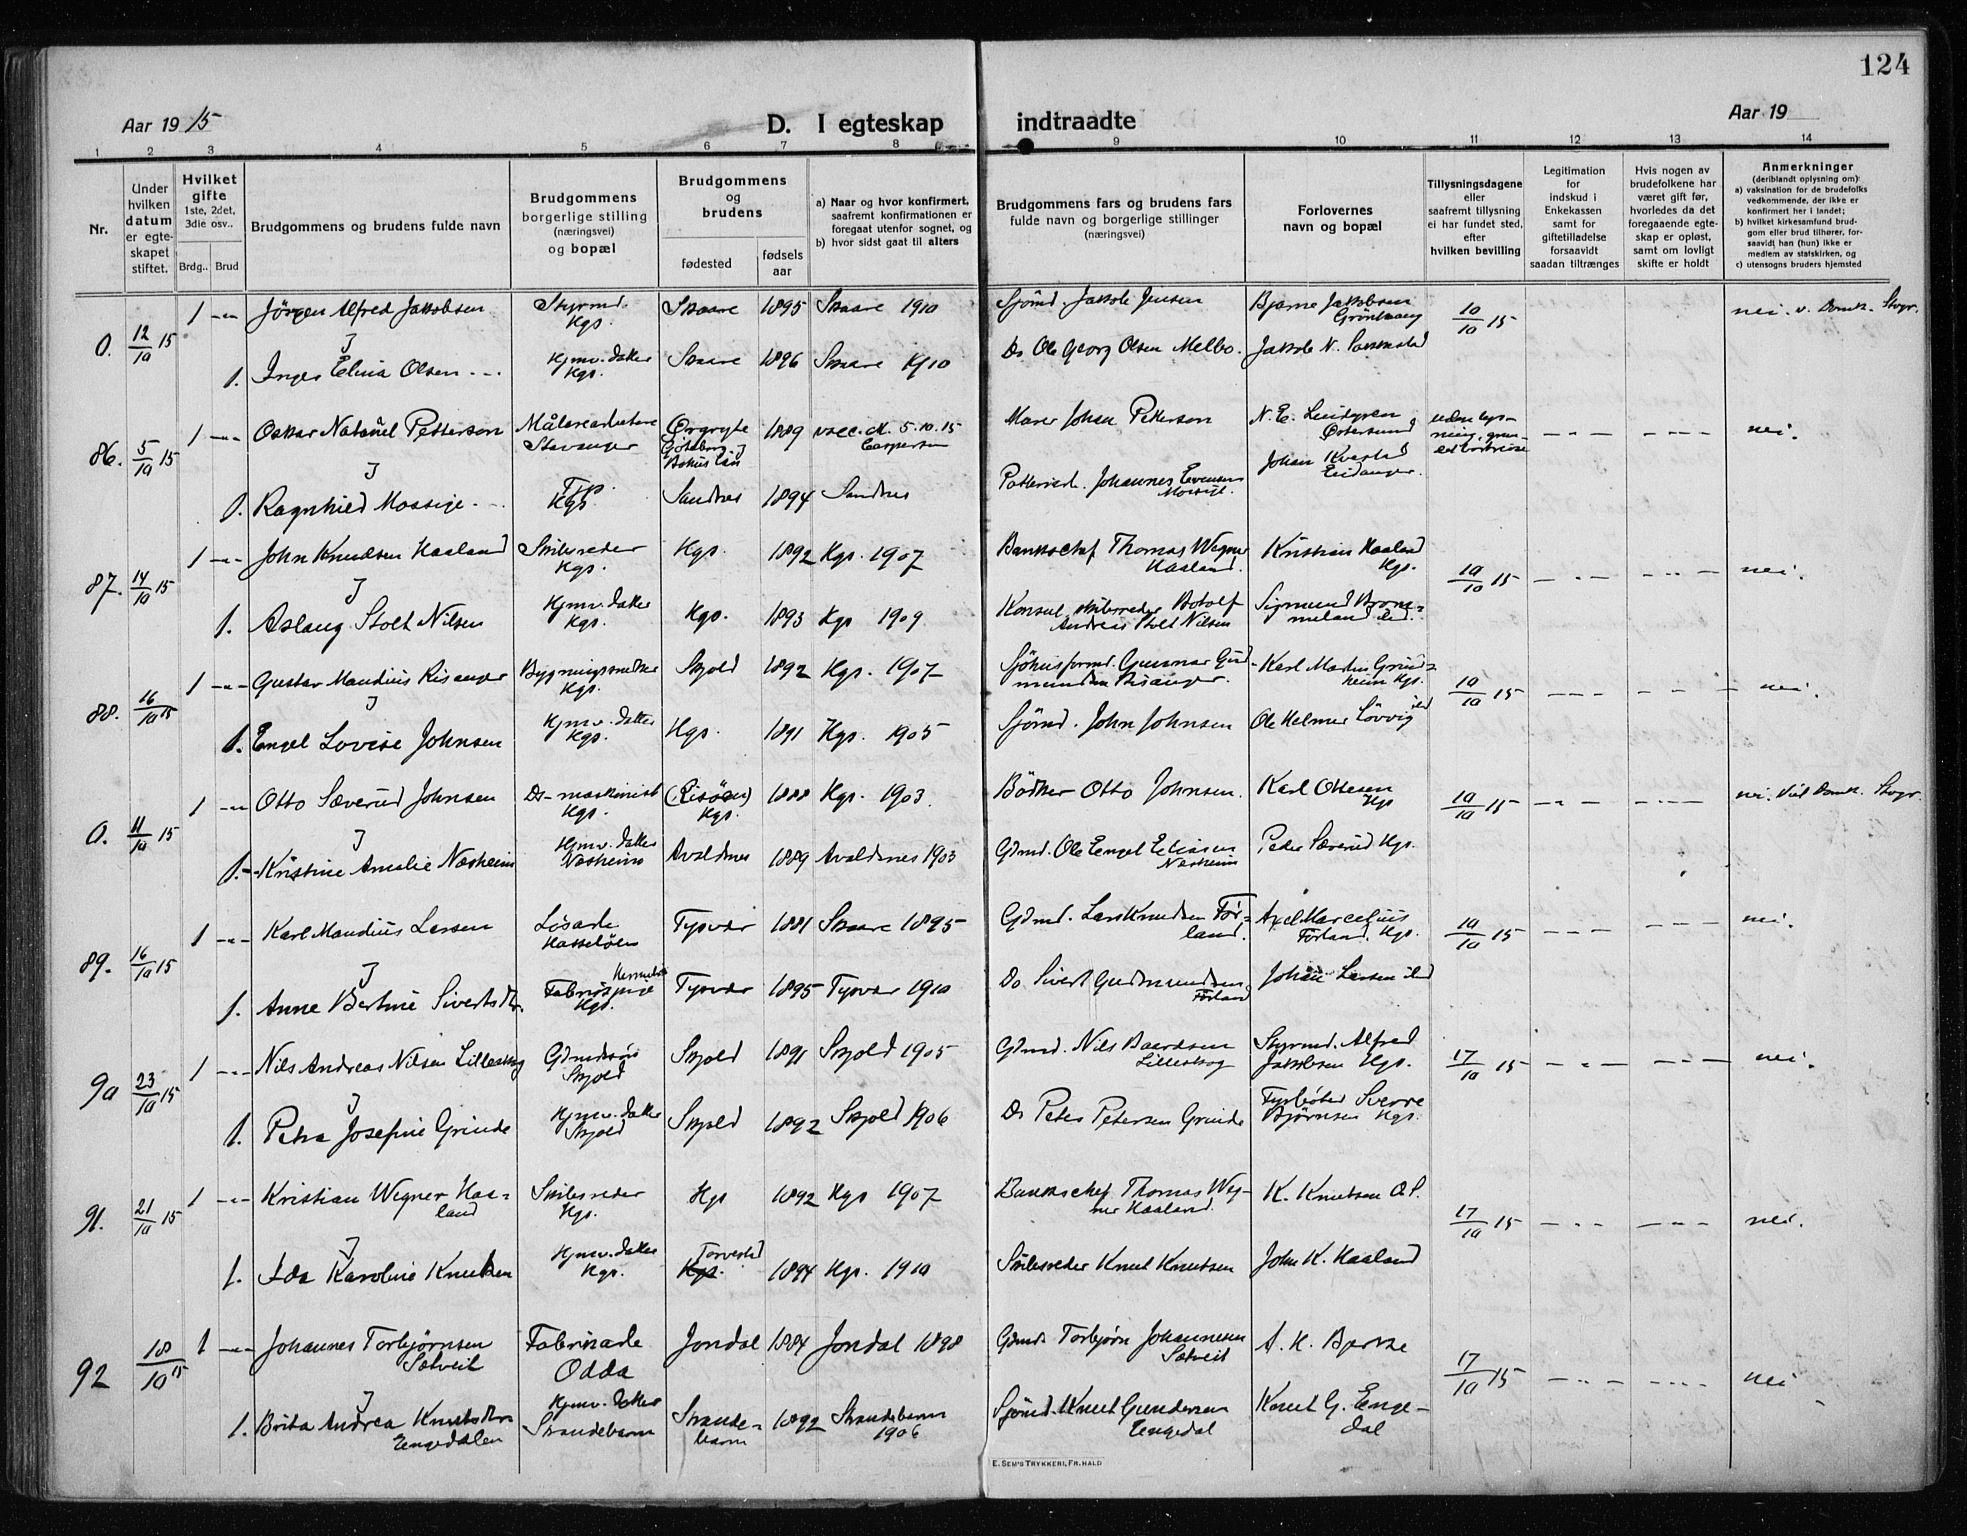 124
Aar 19 15
D. I egteskap indtraadte
Aar 19
1 2 3 4 5 6 7 8 9 10 11 12 13 14
Nr.
Under hvilken datum er egteskapet stiftet.
Hvilket gifte 1ste, 2det, 3die osv..
Brdg.. Brud
Brudgommens og brudens fulde navn
Brudgommens borgerlige stilling (næringsvei) og bopæl
Brudgommens og brudens
fødested
fødselsaar
a) Naar og hvor konfirmert, saafremt konfirmationen er foregaat utenfor sognet, og
b) hvor sidst gaat til alters
Brudgommens fars og brudens fars fulde navn og borgerlige stillinger (næringsvei)
Forlovernes navn og bopæl
Tillysningsdagene eller saafremt tillysning ei har fundet sted, efter hvilken bevilling
Legitimation for indskud i Enkekassen samt for giftetilladelse forsaavidt saadan tiltrænges
Hvis nogen av brudefolkene har været gift før, hvorledes da det foregaaende egteskap er opløst, samt om lovligt skifte er holdt
Anmerkninger (deriblandt oplysning om):
a) vaksination for de brudefolks vedkommende, der ikke er konfirmert her i landet;
b) hvilket kirkesamfund brudgom eller brud tilhører, forsaavidt han (hun) ikke er medlem av statskirken, og
c) utensogns bruders hjemsted
0. 12/10 15 1 -"- Jörgen Alfred Jakobsen Styrmd. Kgs. Skaare 1895 Skaare 1910 Sjömd. Jakob Jensen Bjarne Jakobsen 10/10 15 nei. v. Domk. Stvgr.
1. Inga Elina Olsen Hjmv. datter Kgs. Skaare 1896 Skaare 1910 Do Ole Georg Olsen Melbo. Jakob N.
86. 5/10 15 1 -"- Oskar Natanël Petterson Målarearbetare Stavanger Örgryte Göteborg 1889 vacc. att. 5.10.15 Johan Petterson N. E. Lindgren Östersund nei.
1. Ragnhild Mossige Kgs. Sandnes 1894 Sandnes Johannes Evensen Mossige. Johan Kvestad Eidanger.
87. 14/10 15 1 -"- John Knudsen Haaland Skibsreder Kgs. Kgs. 1892 Kgs. 1907 Bankchef Thomas Wegner Haaland. Kristian Haaland Kgs. 10/10 15 nei.
1. Aslaug Stolt Nilsen Hjmv. datter Kgs. Kgs. 1893 Kgs 1909 Konsul, skibsreder Botolf Andreas Stolt Nilsen Sigmund Brommeland ibd.
88. 16/10 15 1 -"- Gustav Mandius Risanger Bygningssnedker Kgs. Skjold 1892 Kgs. 1907 Sjöhusformd. Gunnar Gudmundsen Risanger. Karl Martin Grindheim Kgs. 10/10 15 nei.
1. Engel Lovise Johnsen Hjmv. datter Kgs. Kgs. 1891 Kgs. 1905 Sjömd. John Johnsen Ole Helmer Lövvig ibd
0. 11/10 15 1 -"- Otto Sæverud Johnsen Do - maskinist Kgs. (Risöen) Kgs. 1888 Kgs. 1903. Bödker Otto Johnsen. Karl Ottesen Kgs 10/10 15 nei. Vid Domk. Stvgr.
1. Kristine Amalie Nesheim Hjmv. datter Nesheim Avaldsnes 1889 Avaldsnes 1903 Gdmd. Ole Engel Eliasen Nesheim Peder Sæverud Kgs.
89. 16/10 15 1 -"- Karl Mandius Larsen Lösarb. Hasselöen Tysvær 1881 Skaare 1895 Gdmd. Lars Knudsen Förland. Axel Marcelius Förland. Kgs. 10/10 15 nei.
1. Anne Bertine Siverts Dtr. Fabrikspige Kgs. Tysvær 1895 Tysvær 1910 Do Sivert Gudmundsen Förland Johan Larsen ibd
90 23/10 15 1 -"- Nils Andreas Nilsen Lilleskog Gdmdssön Skjold Skjold 1891 Skjold 1905 Gdmd. Nils Baardsen Lilleskog Styrmd. Alfred Jakobsen Kgs. 17/10 15 nei.
1. Petra Josefine Grinde Hjmv. datter Skjold Skjold 1892 Skjold 1906 Do Peter Petersen Grinde Fyrböter Sverre Bjørnsen Kgs.
91. 21/10 15 1 -"- Kristian Wegner Haaland Skibsreder Kgs. Kgs 1892 Kgs 1907 Bankchef Thomas Wegner Haaland. K. Knutsen O.S. 17/10 15 nei.
1. Ida Karoline Knutsen Hjmv. datter Kgs. Torvestad Kgs. 1894 Kgs. 1910 Skibsreder Knut Knutsen John K. Haaland
92 18/10 15 1 -"- Johannes Torbjørnsen Sætveit Fabrikarb. Odda Jondal 1884 Jondal 1898 Gdmd. Torbjørn Johannesen Sætveit A. K. Bjerke 17/10 15 nei
1. Brita Andrea Knuts Dtr. Engedalen Hjmv. datter Strandebarm Strandebarm 1892 Strandebarm 1906 Sjömd. Knut Gundersen Engedal Knut G. Engedal
E. SEM'S TRYKKERI, FR.HALD